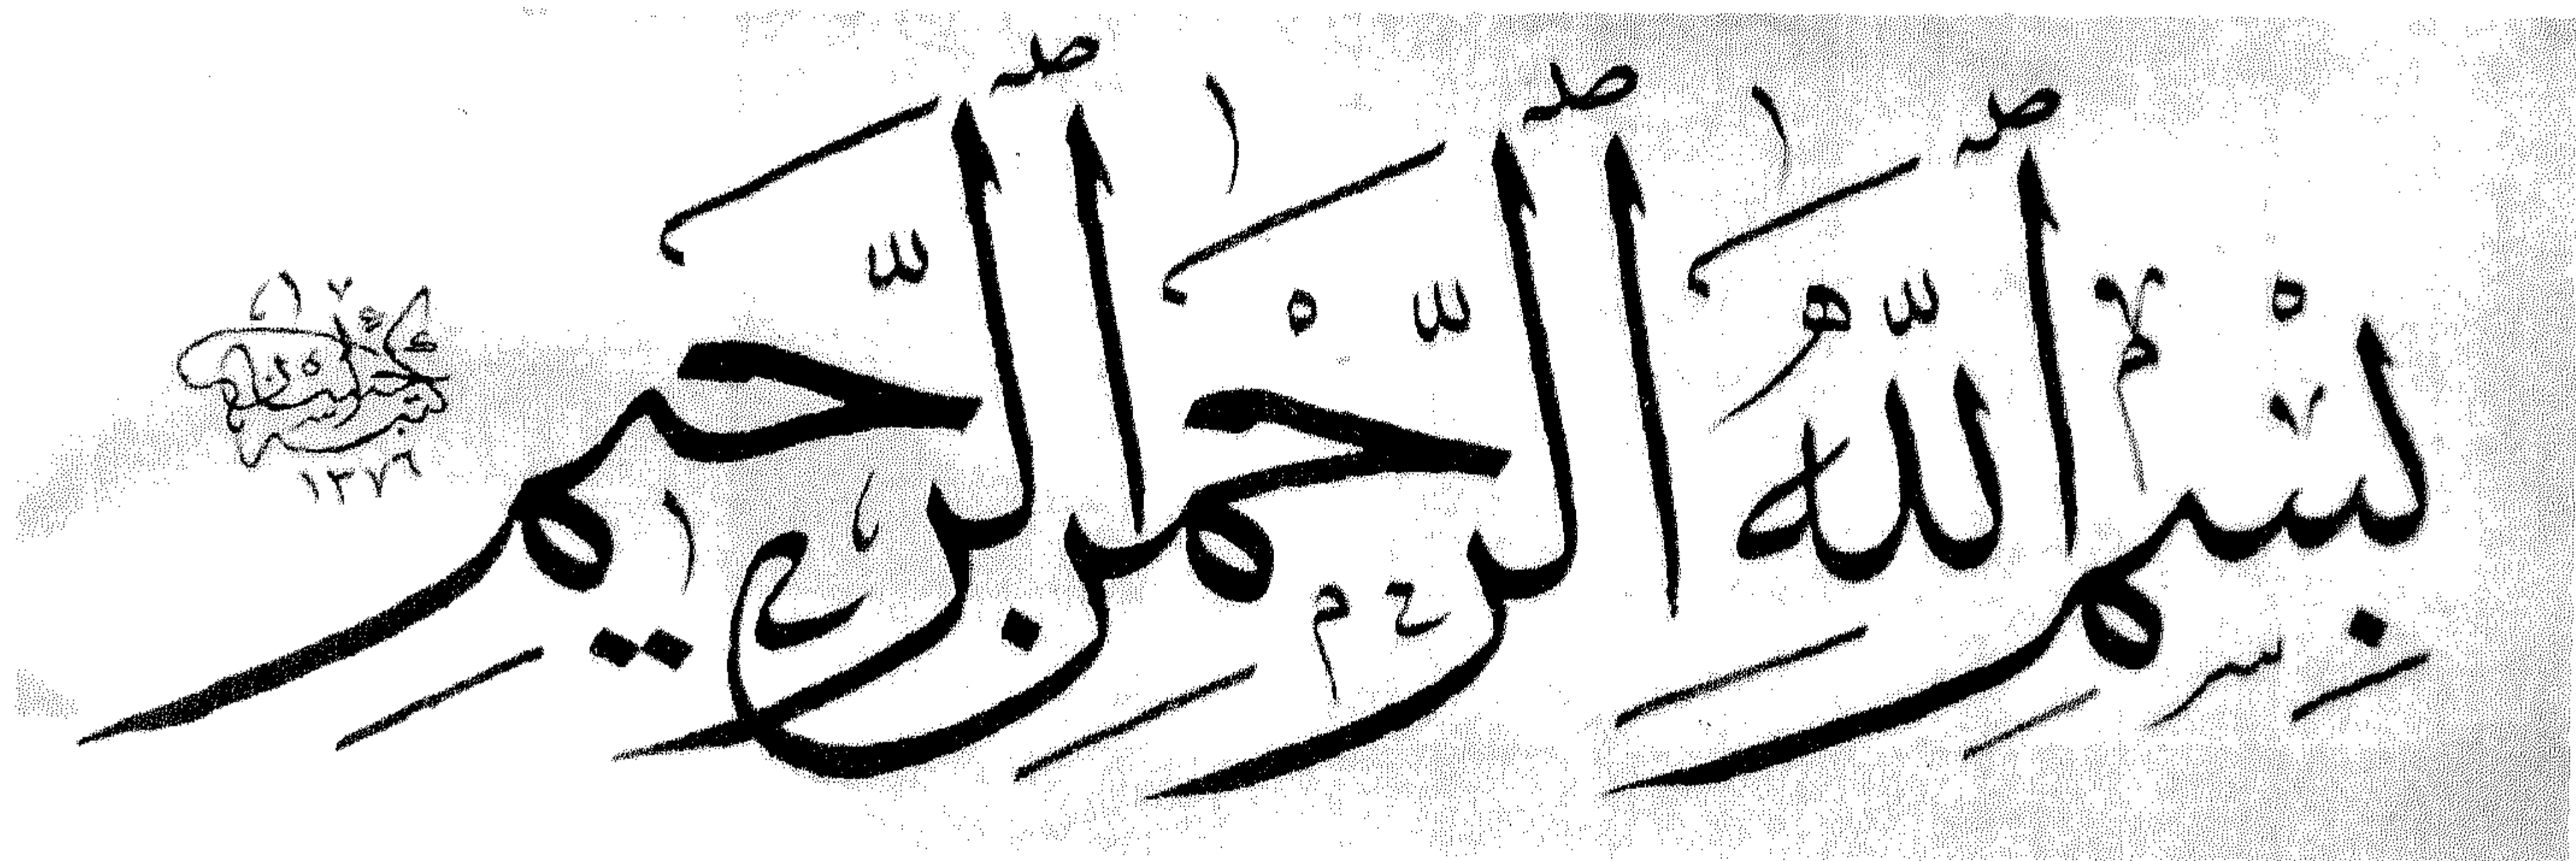 بِسْمِ ٱللَّهِ ٱلرَّحْمٰنِ ٱلرَّحِيمِ
١٣٧٩